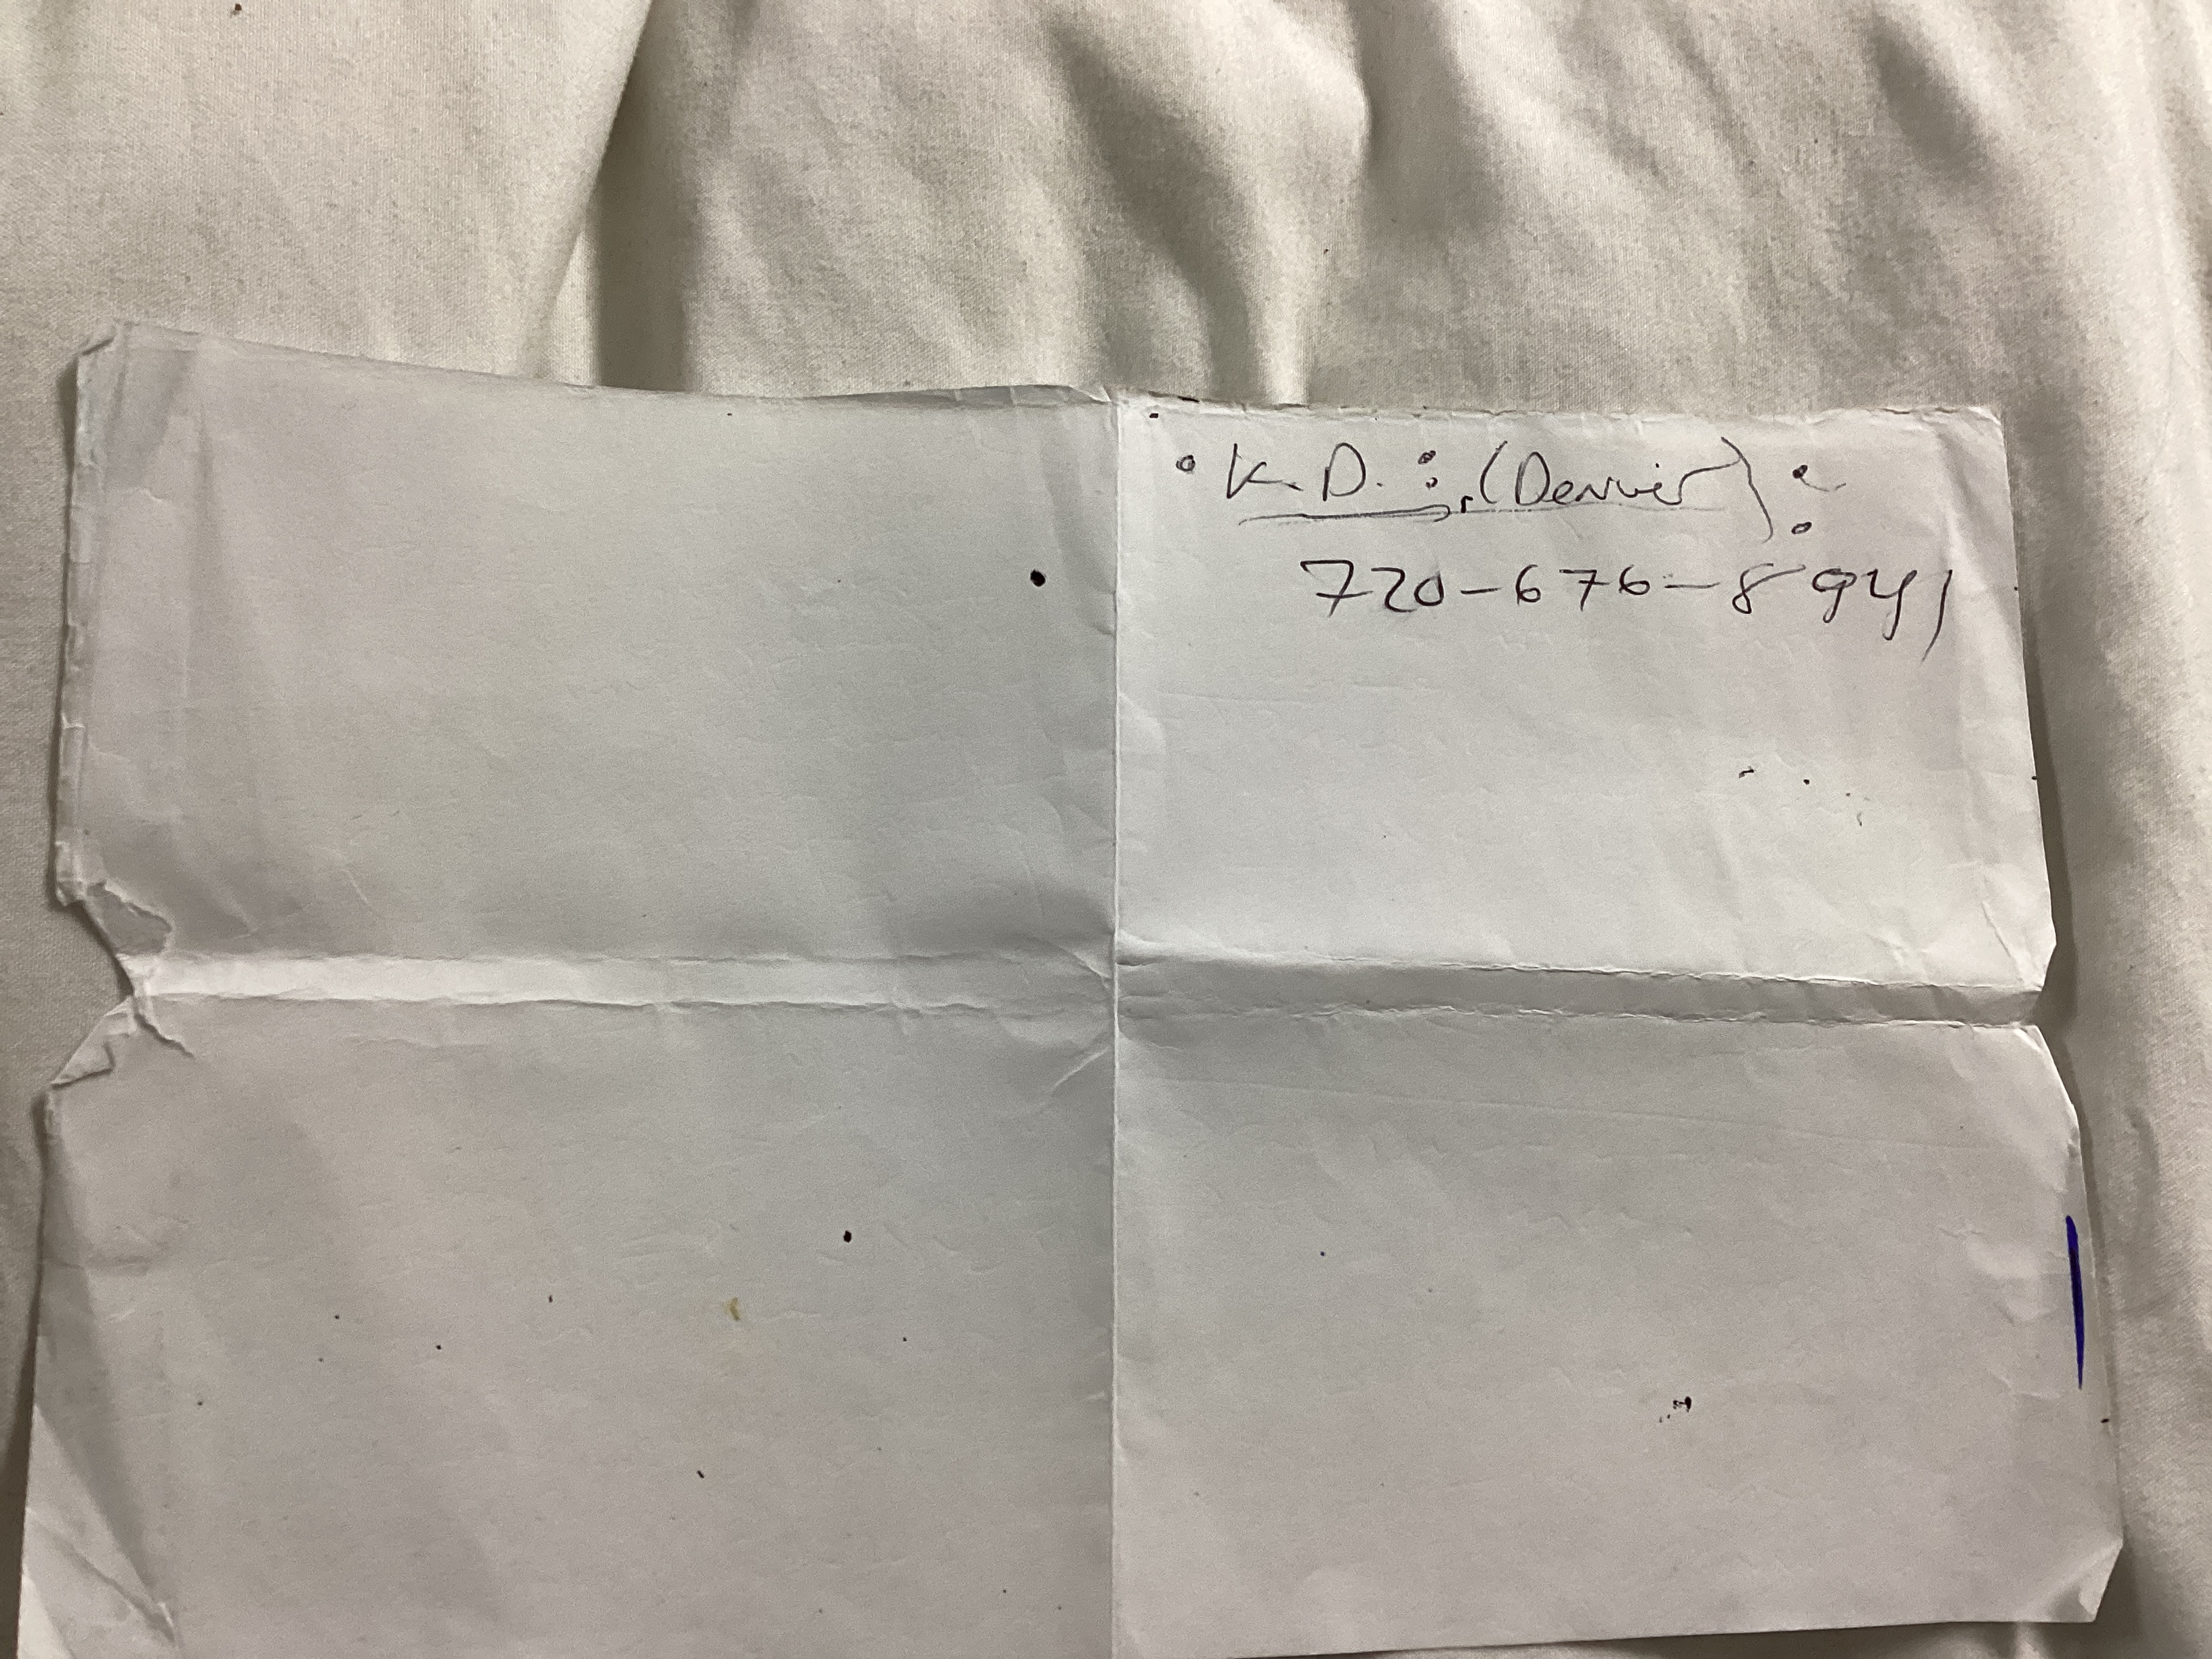 • K.D. : (Denver) :
720-676-8941